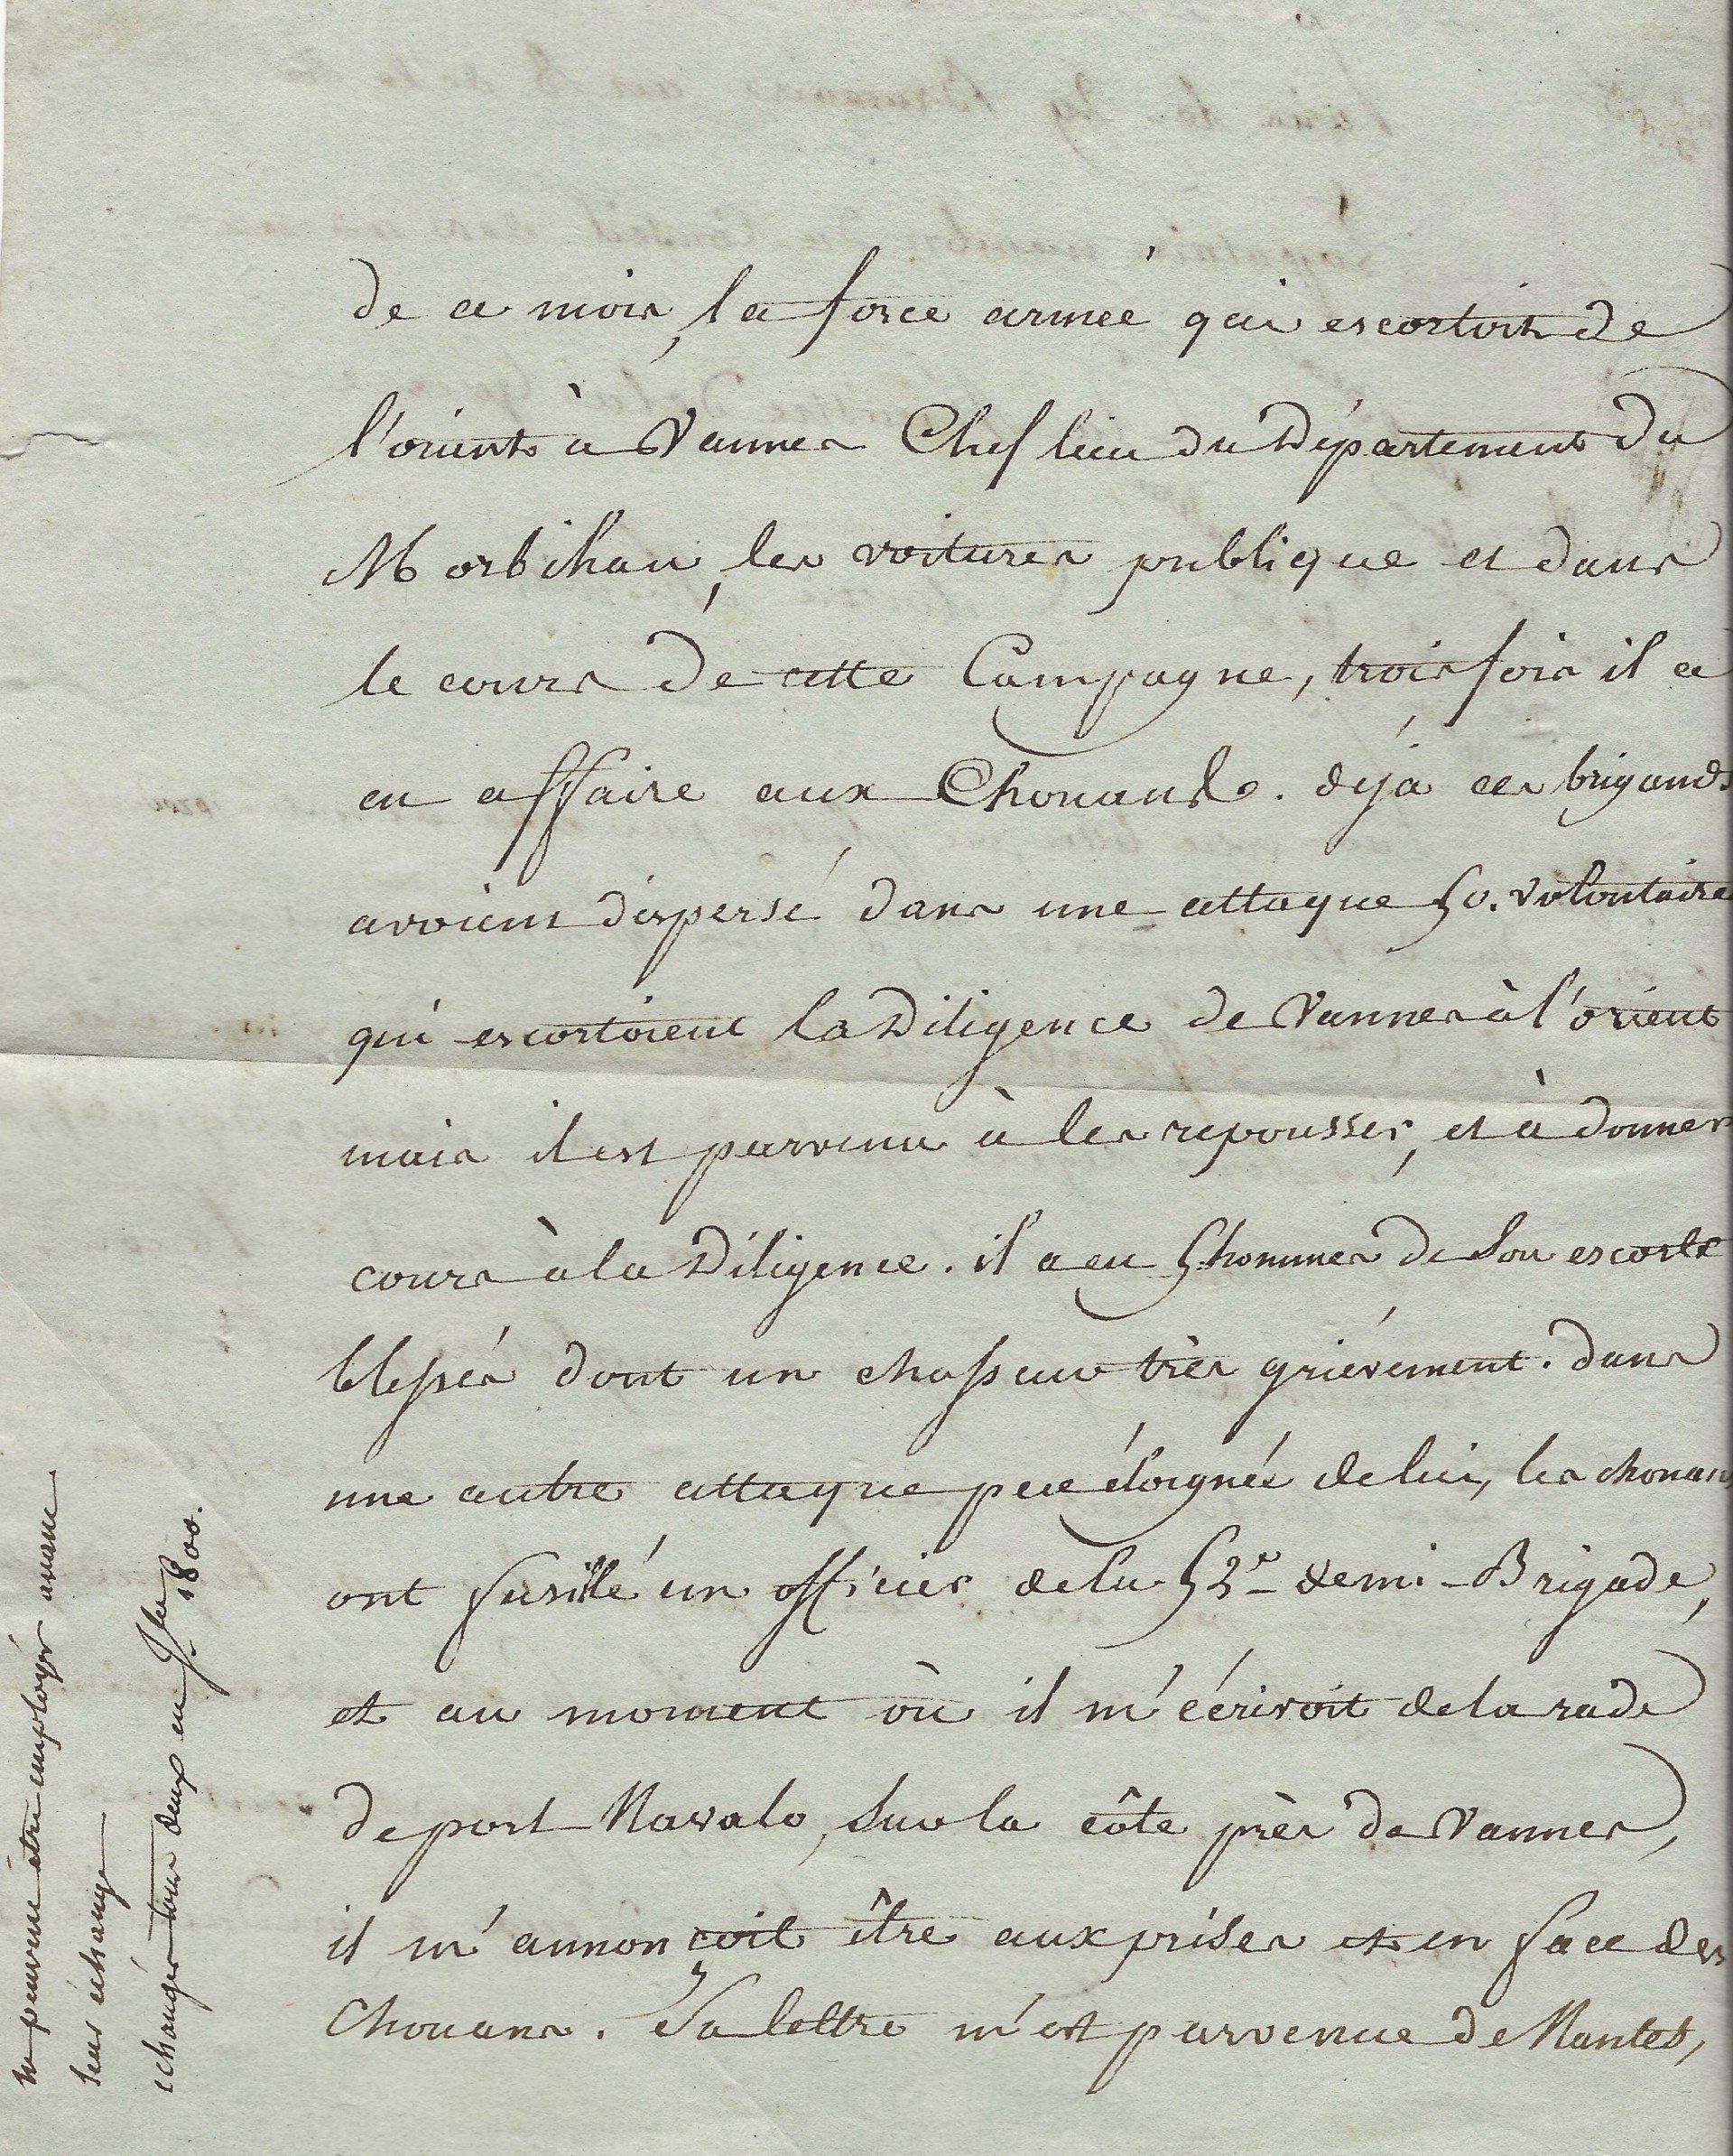 de ce mois, la force armée qui escortoit de
l'orient à Vannes Chef lieu du Département du
Morbihan, les voitures publique et dans
le cours de cette Campagne, trois fois il a
eu affaire aux Chouans. déja ces brigands
avoient dispersé dans une attaque 50. volontaire
qui escortoient la Diligence de Vannes à l'orient
mais il est parvenu à les repousser, et à donner
cours à la Diligence. il a eu 5 hommes de son escorte
blessés dont un chasseur très grièvement. dans
une autre attaque peu éloignée de lui, les chouans
ont fusillé un officier de la 52e demi-Brigade,
et au moment où il m'écrivoit de la rade
de port Navalo, sur la côte près de Vannes,
il m'annonçoit être aux prises et en face des
Chouans. Sa lettre m'est parvenue de Nantes,
ne peuvent être employés avant
leur échange
échangés tous deux en 1800.